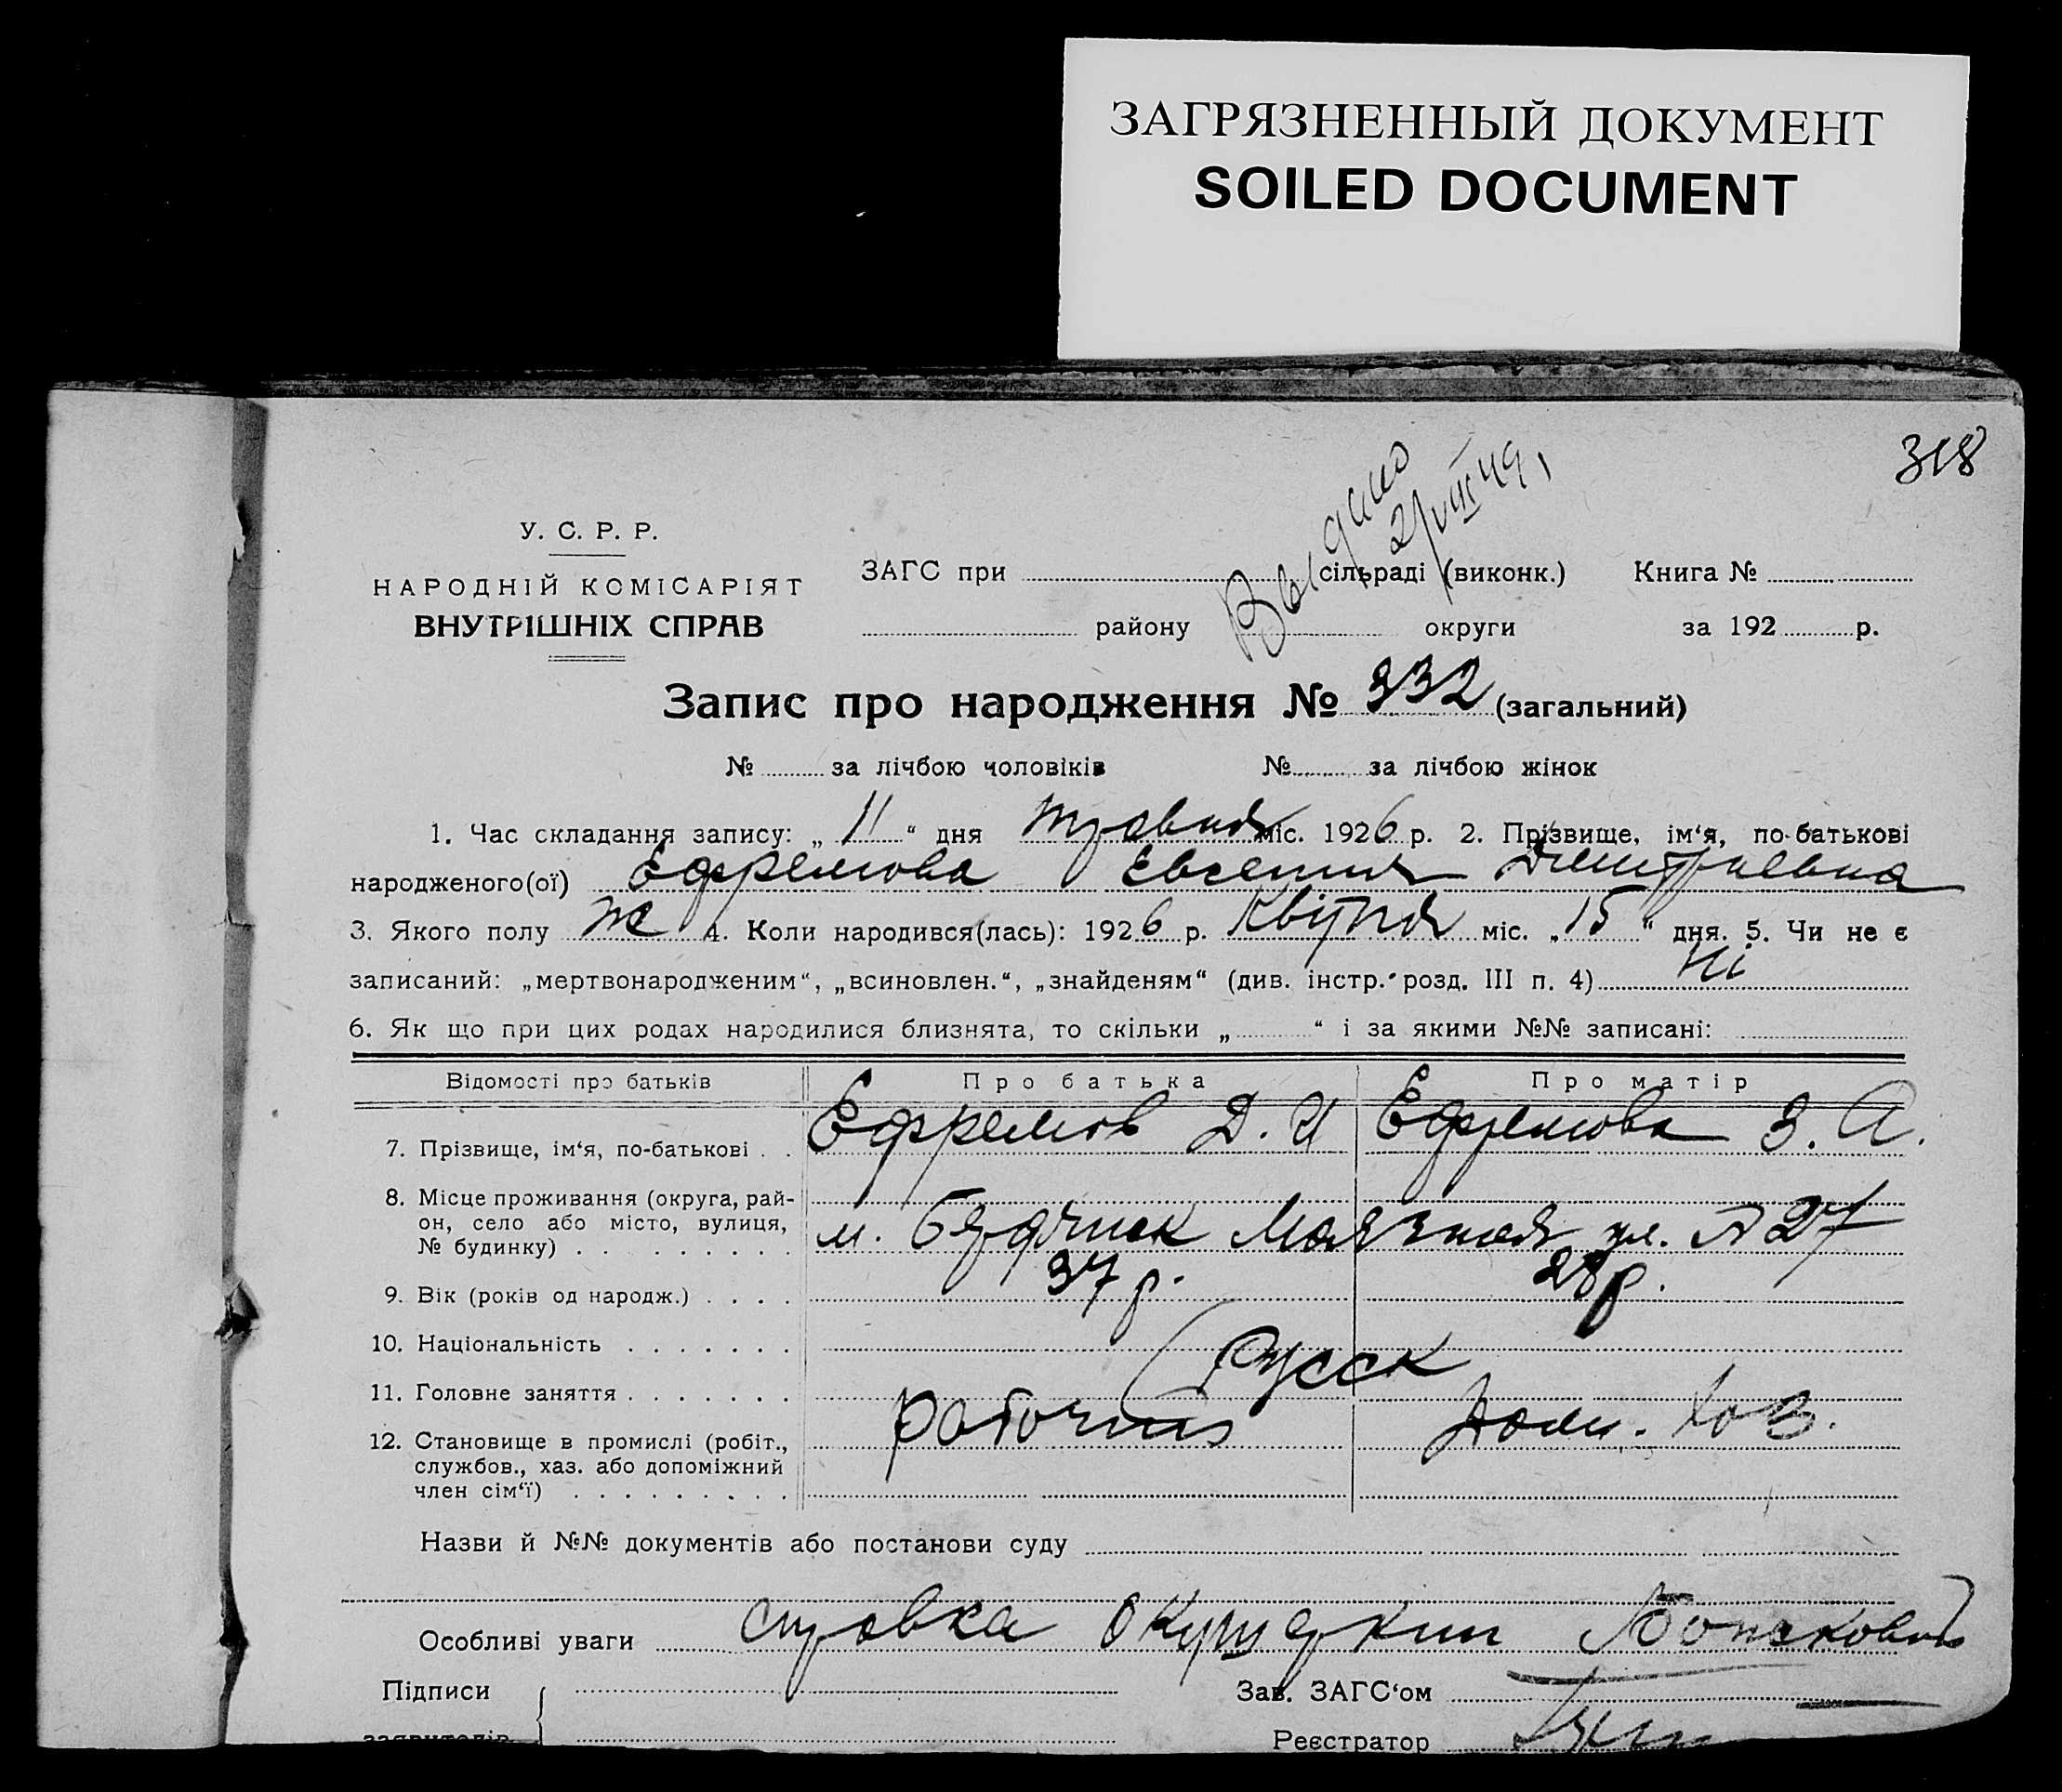 ЗАГРЯЗНЕННЫЙ ДОКУМЕНТ
SOILED DOCUMENT
318
Выдано
21/VIII 49,
У. С. Р. Р.
НАРОДНІЙ КОМІСАРІЯТ
ВНУТРІШНІХ СПРАВ
ЗАГС при сільраді (виконк.) Книга №
району округи за 192 р.
Запис про народження № 332 (загальний)
№ за лічбою чоловіків № за лічбою жінок
1. Час складання запису: „ 11 “ дня травня міс. 1926 р. 2. Прізвище, ім‘я, по-батькові
народженого(ої) Ефремова Евгения Дмитриевна
3. Якого полу ж 4. Коли народився(лась): 1926 р. Квітня міс. „ 15 “ дня. 5. Чи не є
записаний: „мертвонародженим“, „всиновлен.“, „знайденям“ (див. інстр. розд. III п. 4) Ні
6. Як що при цих родах народилися близнята, то скільки „ “ і за якими №№ записані:
Відомості про батьків Про батька Про матір
7. Прізвище, ім‘я, по-батькові . . Ефремов Д. И Ефремова З. А.
8. Місце проживання (округа, рай-
он, село або місто, вулиця,
№ будинку) . . . . . . . . . м. ул. № 27
9. Вік (років од народж.) . . . . 37 р. 28 р.
10. Національність . . . . . . . Русск
11. Головне заняття . . . . . . .
12. Становище в промислі (робіт., рабочий Дом. хоз.
службов., хаз. або допоміжний
член сім‘ї) . . . . . . . . .
Назви й №№ документів або постанови суду
Особливі уваги справка
Підписи Зав. ЗАГС‘ом
заявителів Реєстратор